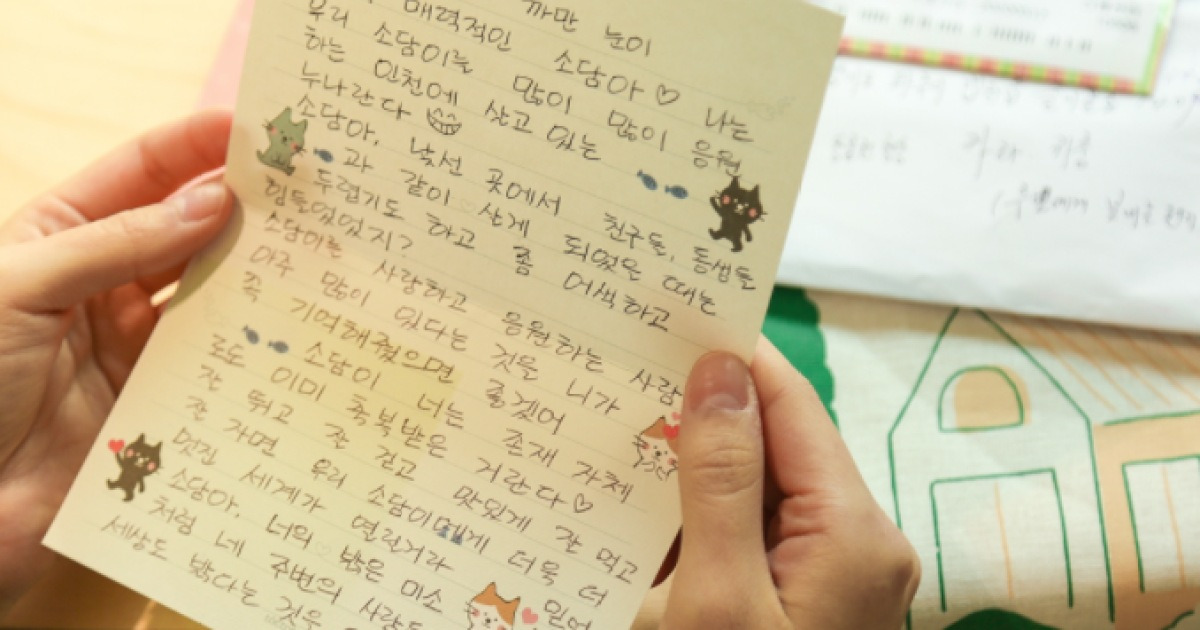 까만 눈이
매력적인 소담아♡ 나는
우리 소담이를 많이 많이 응원
하는 인천에 살고 있는
누나란다
소담아, 낯선 곳에서 친구들, 동생들
과 같이 살게 되었을 때는
두렵기도 하고 좀 어색하고
힘들었었지?
소담이를 사랑하고 응원하는 사람
아주 많이 있다는 것을 니가
꼭 기억해줬으면 좋겠어
소담이 너는 존재 자체
로도 이미 축복받은 거란다♡
잘 뛰고 잘 걷고 맛있게 잘 먹고
잘 자면 우리 소담이에게 더욱 더
멋진 세계가 열린거라 믿어
소담아, 너의 밝은 미소
처럼 네 주변의 사람도
세상도 밝다는 것을